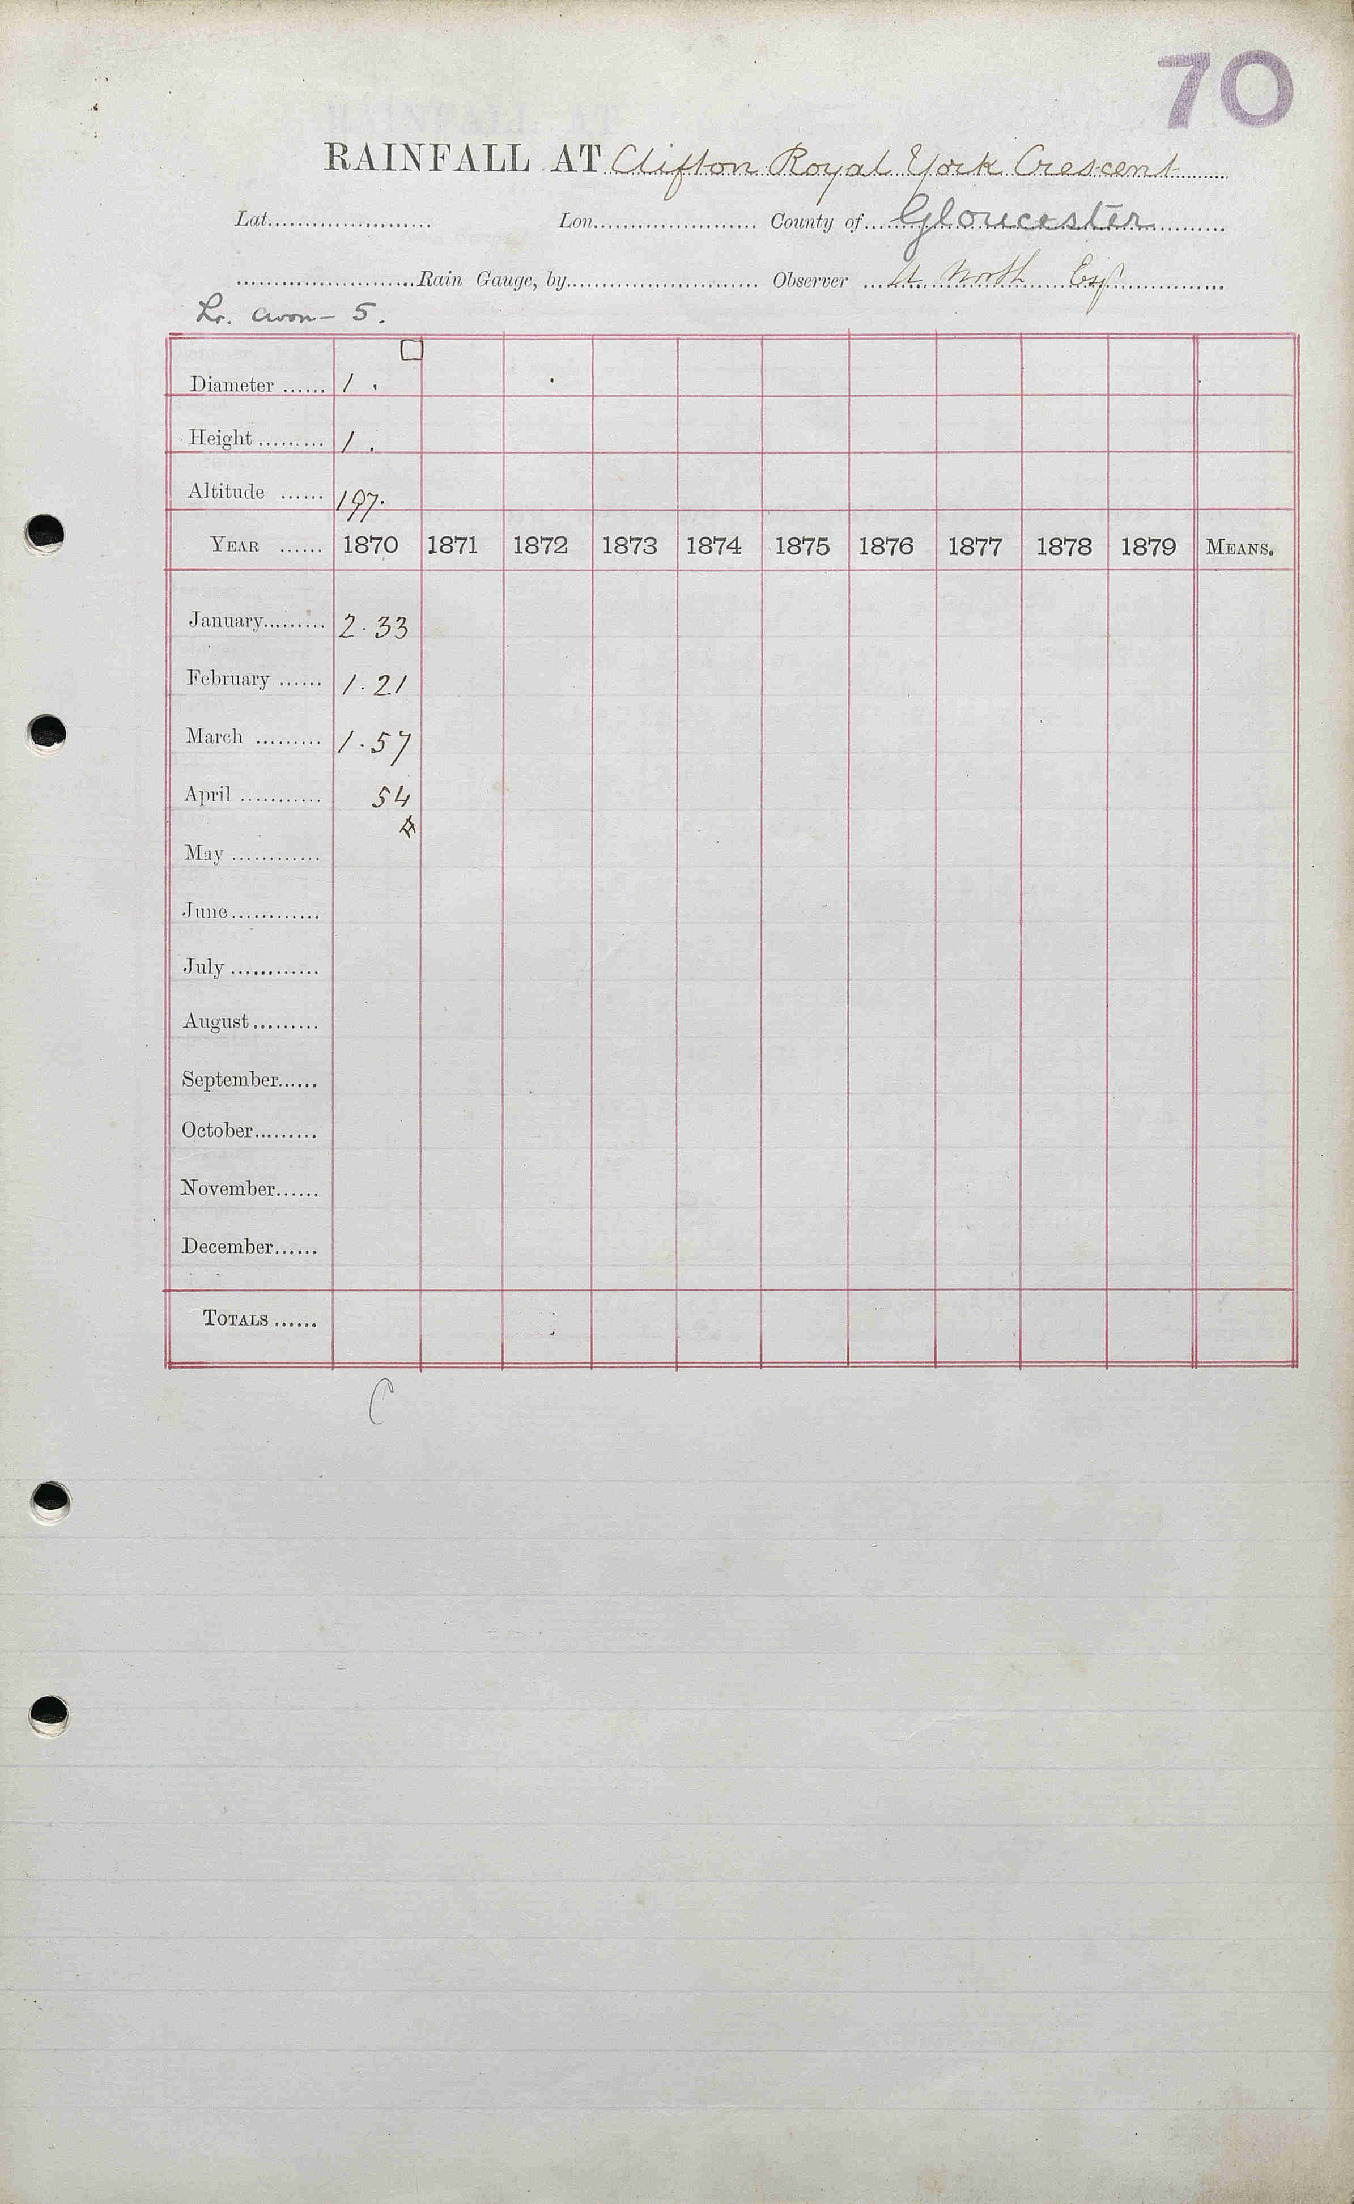 70
RAINFALL AT Clifton Royal York Crescent
Lat. Lon. County of Gloucester
Rain Gauge, by Observer North Esq
Lr. Avon - 5.
Diameter 1.
Height 1.
Altitude 197.
YEAR 1870 1871 1872 1873 1874 1875 1876 1877 1878 1879 MEANS.
January 2.33
February 1.21
March 1.57
April 54
May
June
July
August
September
October
November
December
TOTALS